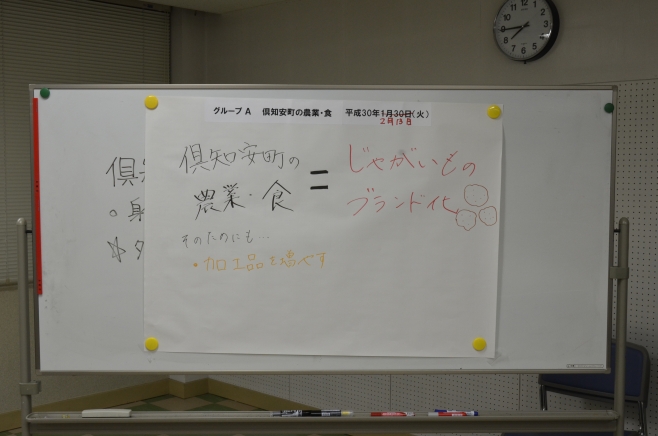 グループ A 倶知安町の農業・食 平成30年1月30日(火)
2月13日
倶知安町の
農業・食
=
じゃがいもの
ブランド化
そのためにも…
・加工品を増やす
倶知